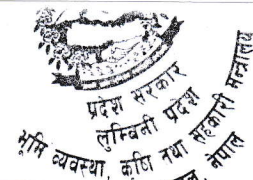 प्रदेश सरकार
लुम्बिनी प्रदेश
भूमि व्यवस्था, कृषि तथा सहकारी मन्त्रालय
नेपाल